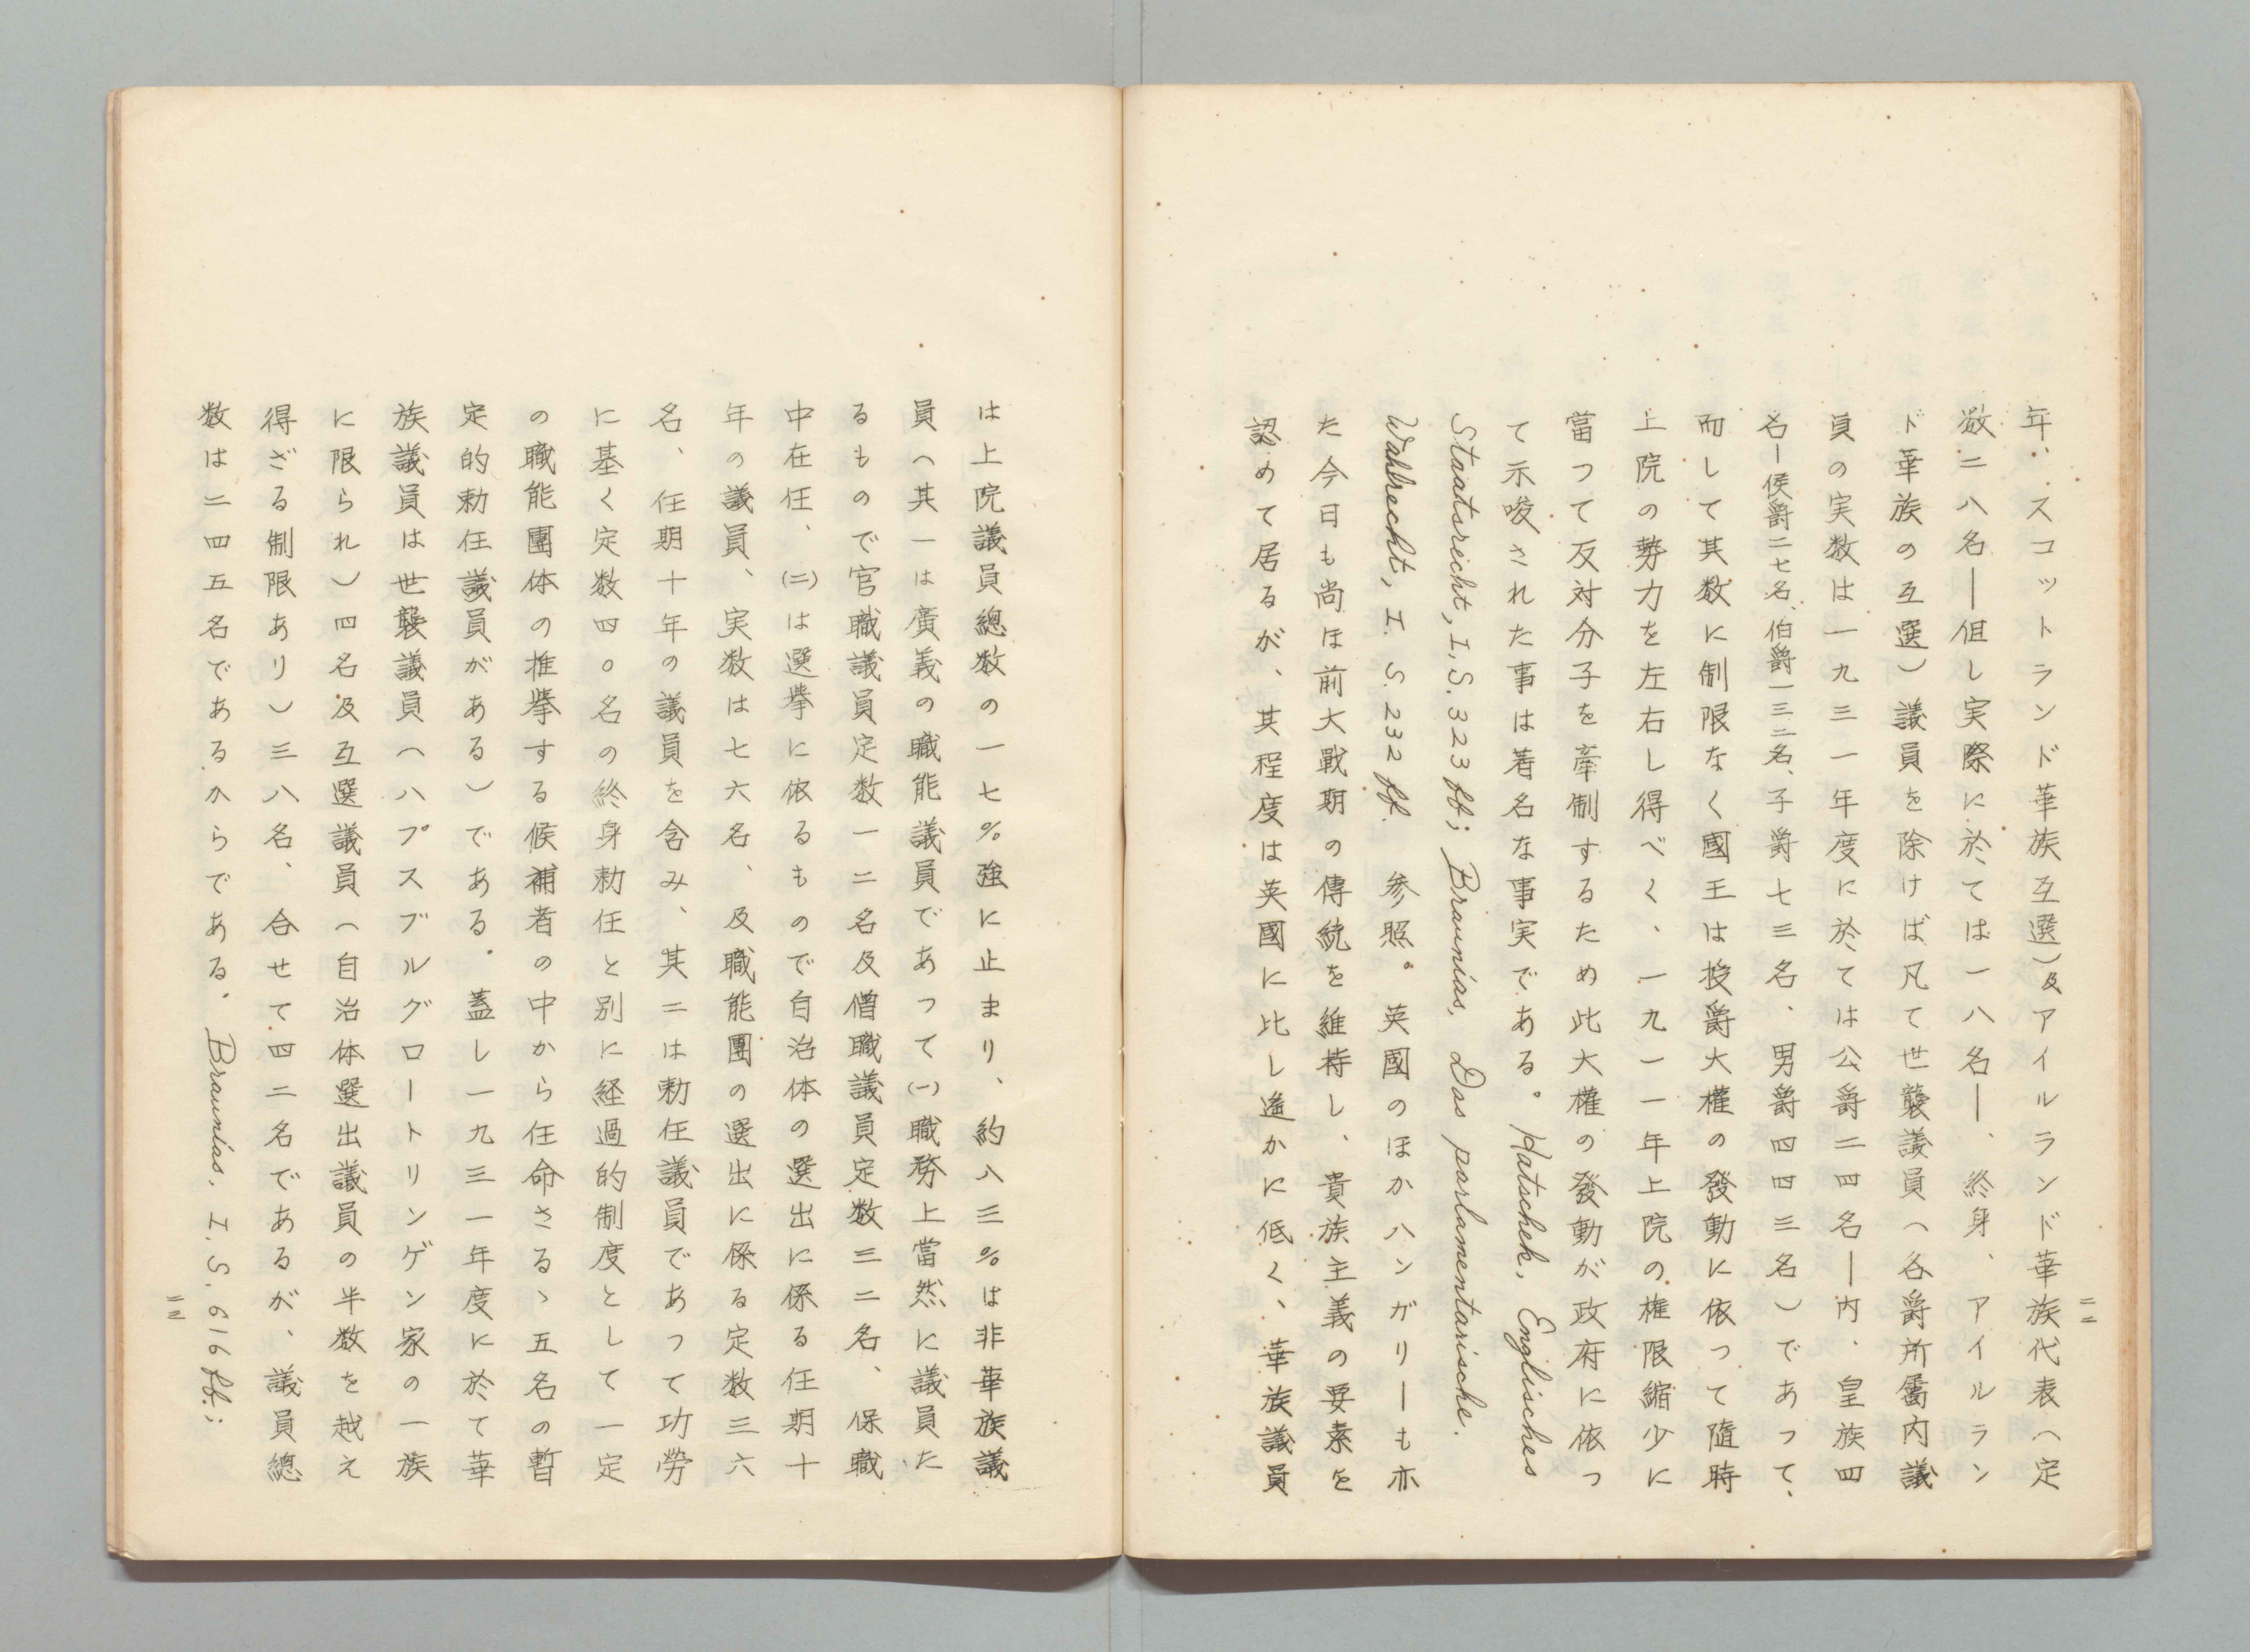 年、スコットランド華族互選)及アイルランド華族代表(定
数二八名―但し実際に於ては一八名―、終身、アイルラン
ド華族の互選)議員を除けば凡て世襲議員(各爵所屬内議
員の実数は一九三一年度に於ては公爵二四名―内、皇族四
名―侯爵二七名、伯爵一三二名、子爵七三名、男爵四四三名)であって、
而して其数に制限なく國王は授爵大權の發動に依って隨時
上院の勢力を左右し得べく、一九一一年上院の権限縮少に
當つて反対分子を牽制するため此大權の發動が政府に依っ
て示唆された事は著名な事実である。Hatschek, Englisches
Staatsricht, I, S. 323 ff; Braunias, Das parlamentarische.
Wahlrecht, I. S. 232 ff. 参照。英國のほかハンガリーも亦
た今日も尚ほ前大戰期の傳統を維持し、貴族主義の要素を
認めて居るが、其程度は英國に比し遙かに低く、華族議員
二二
は上院議員總数の一七%強に止まり、約八三%は非華族議
員(其一は廣義の職能議員であって(一)職務上當然に議員た
るもので官職議員定数一二名及僧職議員定数三二名、保職
中在任、(二)は選擧に依るもので自治体の選出に係る任期十
年の議員、実数は七六名、及職能團の選出に係る定数三六
名、任期十年の議員を含み、其二は勅任議員であって功勞
に基く定数四〇名の終身勅任と別に経過的制度として一定
の職能團体の推擧する候補者の中から任命さるゝ五名の暫
定的勅任議員がある)である。蓋し一九三一年度に於て華
族議員は世襲議員(ハプスブルグロートリンゲン家の一族
に限られ)四名及互選議員(自治体選出議員の半数を越え
得ざる制限あり)三八名、合せて四二名であるが、議員總
数は二四五名であるからである。Braunias, I. S. 616 ff.;
二三